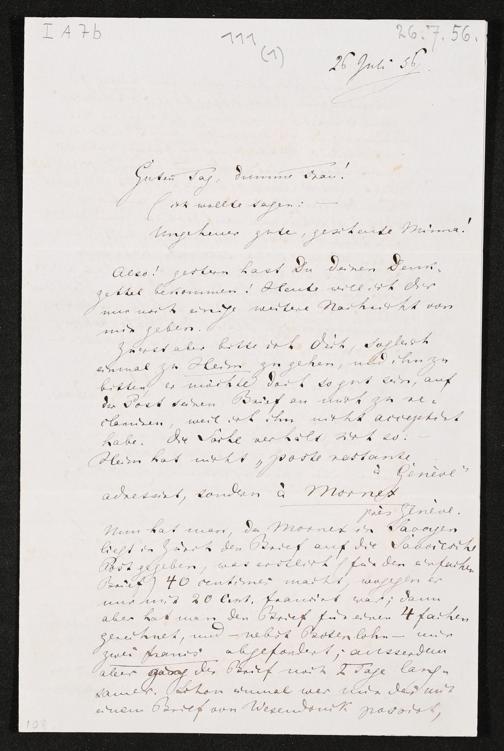 I A 7b
111
(1)
26.7.56.
26 Juli 56.
Guten Tag, dumme Frau!
(ich wollte sagen: —
Ungeheuer gute, gescheute Minna!
Also! gestern hast Du deinen Denk-
zettel bekommen! Heute will ich Dir
nur noch einige weitere Nachricht von
mir geben.
Zuerst aber bitte ich Dich, sogleich
einmal zu Heim zu gehen, und ihn zu
bitten, er möchte doch so gut sein, auf
der Post seinen Brief an mich zu re-
clamiren, weil ich ihn nicht acceptirt
habe. Die Sache verhält sich so: —
Heim hat nicht „poste restante
à Genève"
adressirt, sondern à Mornex
près Genève.
Nun hat man, da Mornex in Savoyen
liegt in Zürich den Brief auf die Savoische
Post gegeben, was erstlich (für den einfachen
Brief) 40 centimes macht, wogegen er
nur mit 20 Cent. francirt war; dann
aber hat man den Brief für einen 4fachen
gerechnet, und — nebst Botenlohn — mir
zwei francs abgefordert; ausserdem
aber ging der Brief noch 2 Tage lang-
samer. Schon einmal war mir das mit
einem Brief von Wesendonck passirt,